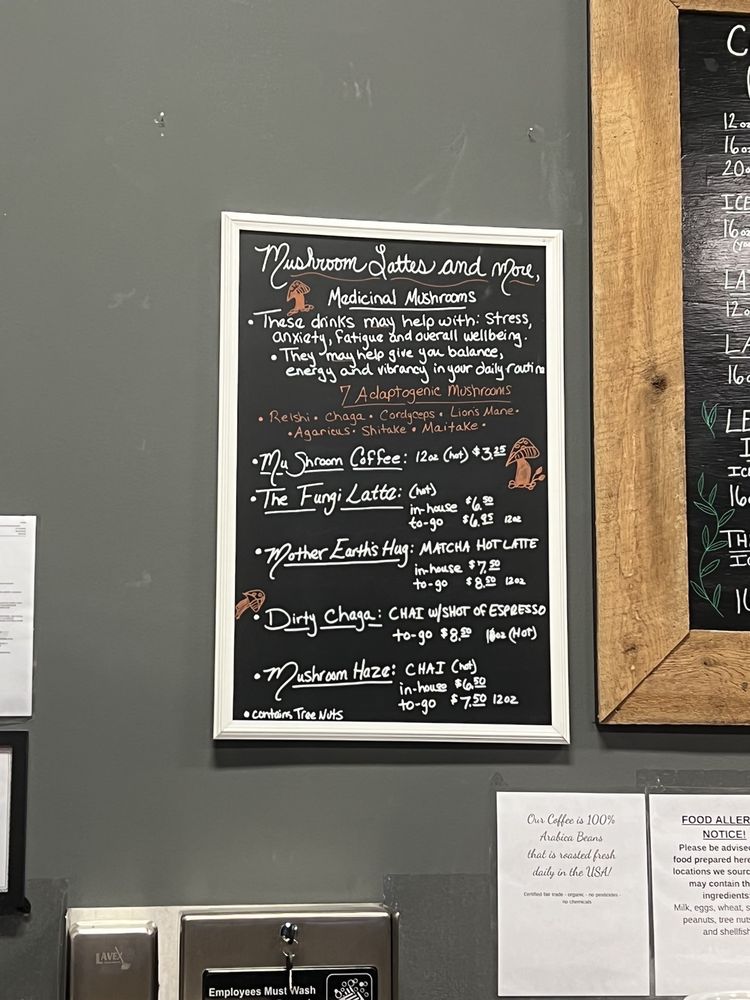 Mushroom Lattes and More,
Medicinal Mushrooms
• These drinks may help with: Stress,
anxiety, Fatigue and overall wellbeing.
• They may help give you balance,
energy and vibrancy in your daily routin
7 Adaptogenic Mushrooms
• Reishi • Chaga • Cordyceps • Lion's Mane •
• Agaricus • Shitake • Maitake •
• Mu Shroom Coffee: 12oz (hot) $3.25
• The Fungi Latte: (hot)
in-house $6.50
to-go $6.85 12oz
• Mother Earth's Hug: MATCHA HOT LATTE
in-house $7.50
to-go $8.50 12oz
• Dirty Chaga: CHAI W/SHOT OF ESPRESSO
to-go $8.50 16oz (Hot)
• Mushroom Haze: CHAI (hot)
in-house $6.50
to-go $7.50 12oz
• contains Tree Nuts
C
12oz
16oz
20o
ICE
16o
LA
12o
LA
16o
LE
I
ICE
16o
TH
IC
16
Our Coffee is 100%
Arabica Beans
that is roasted fresh
daily in the USA!
Certified fair trade - organic - no pesticides -
no chemicals
FOOD ALLER
NOTICE!
Please be advise
food prepared here
locations we sourc
may contain th
ingredients:
Milk, eggs, wheat, s
peanuts, tree nuts
and shellfish
LAVEX
Employees Must Wash